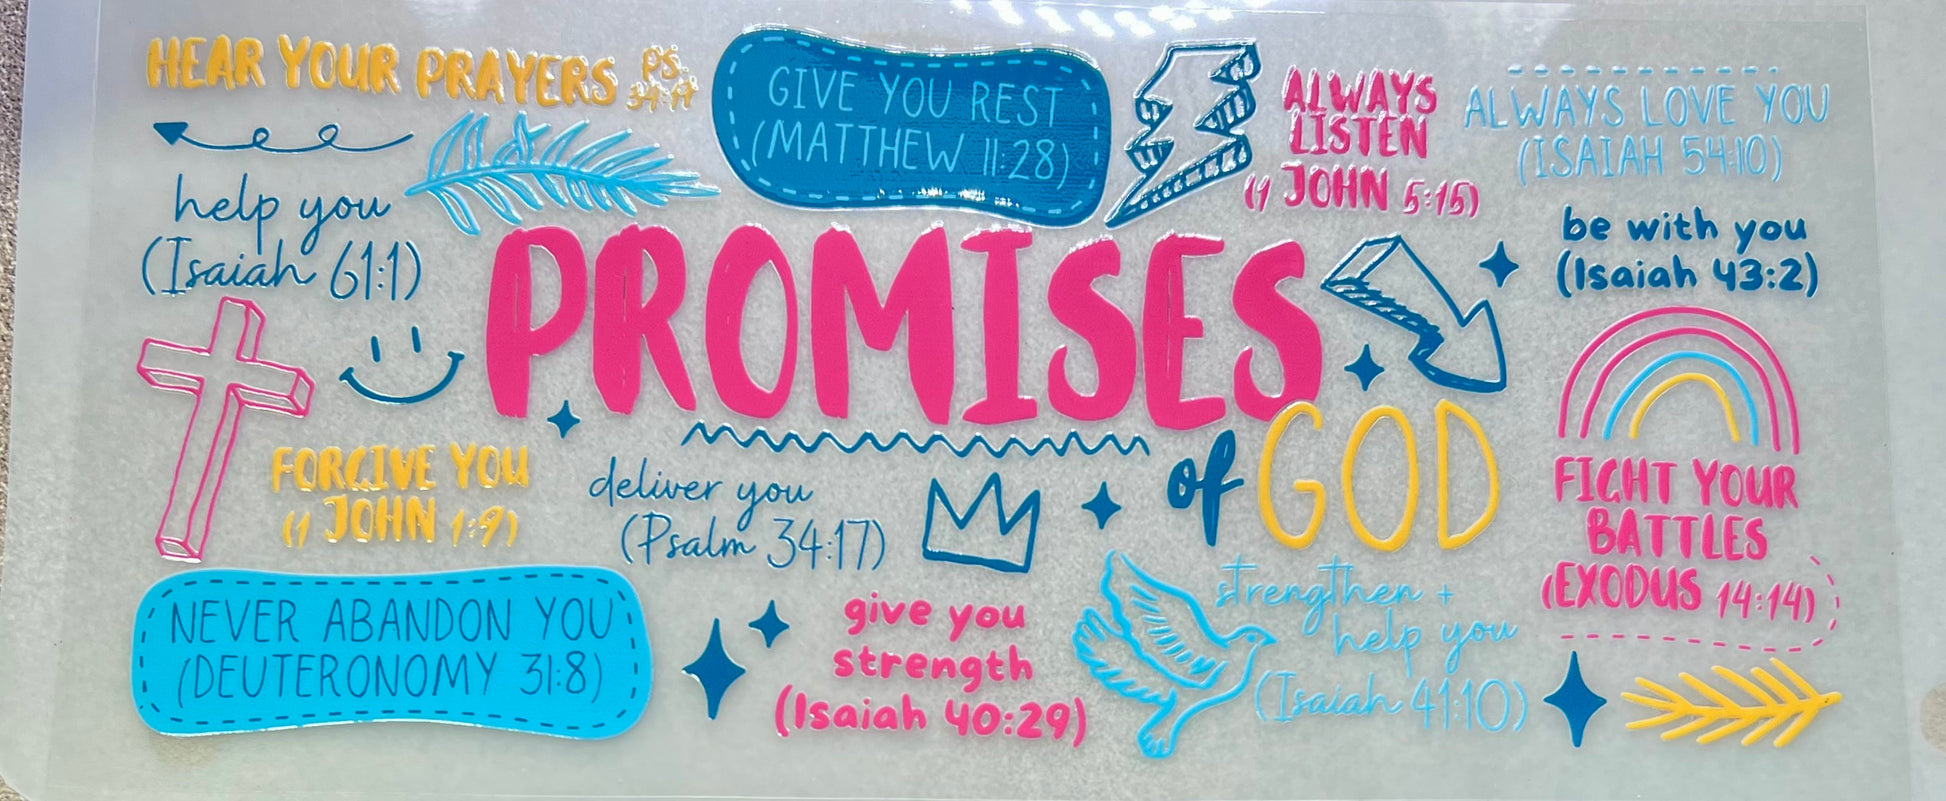 HEAR YOUR PRAYERS PS.
34:17
GIVE YOU REST
(MATTHEW 11:28)
ALWAYS
LISTEN
(1 JOHN 5:15)
ALWAYS LOVE YOU
(ISAIAH 54:10)
help you
(Isaiah 61:1)
be with you
(Isaiah 43:2)
PROMISES
of GOD
FORGIVE YOU
(1 JOHN 1:9)
deliver you
(Psalm 34:17)
FIGHT YOUR
BATTLES
(EXODUS 14:14)
NEVER ABANDON YOU
(DEUTERONOMY 31:8)
give you
strength
(Isaiah 40:29)
strengthen +
help you
(Isaiah 41:10)